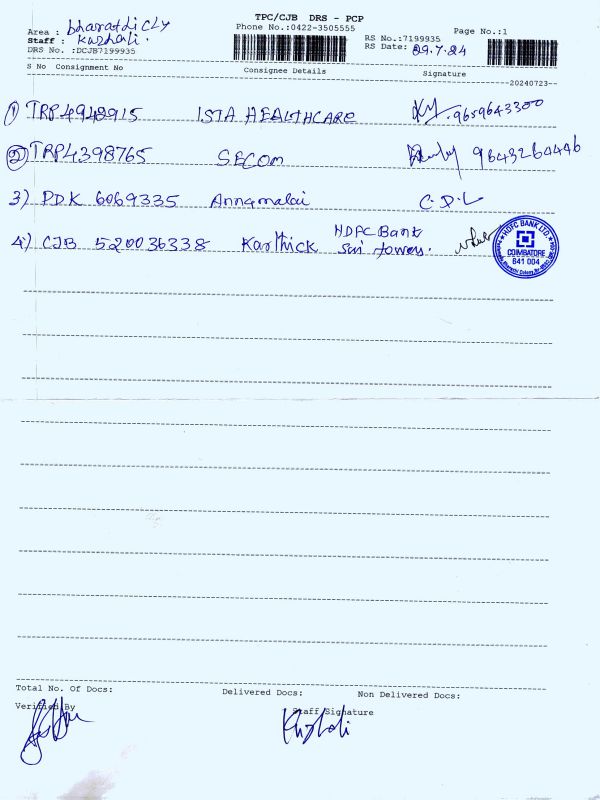 TPC/CJB DRS - PCP
Phone No.:0422-3505555
Page No.:1
Area : bharathi cly
Staff : Kuzhali.
DRS No. :DCJB7199935
RS No.:7199935
RS Date: 29.7.24
S No Consignment No Consignee Details Signature
20240723
1) TRP4948915 ISTA HEALTHCARE 9659643300
2) TRP4398765 SECOM 9643260446
3) PDK 6069335 Annamalai C.D.L
4) CJB 520036338 Karthick HDFC Bank
Sai towers.
HDFC BANK LTD.
COIMBATORE
641 004
Total No. Of Docs: Delivered Docs: Non Delivered Docs:
Verified By Staff Signature
Kuzhali